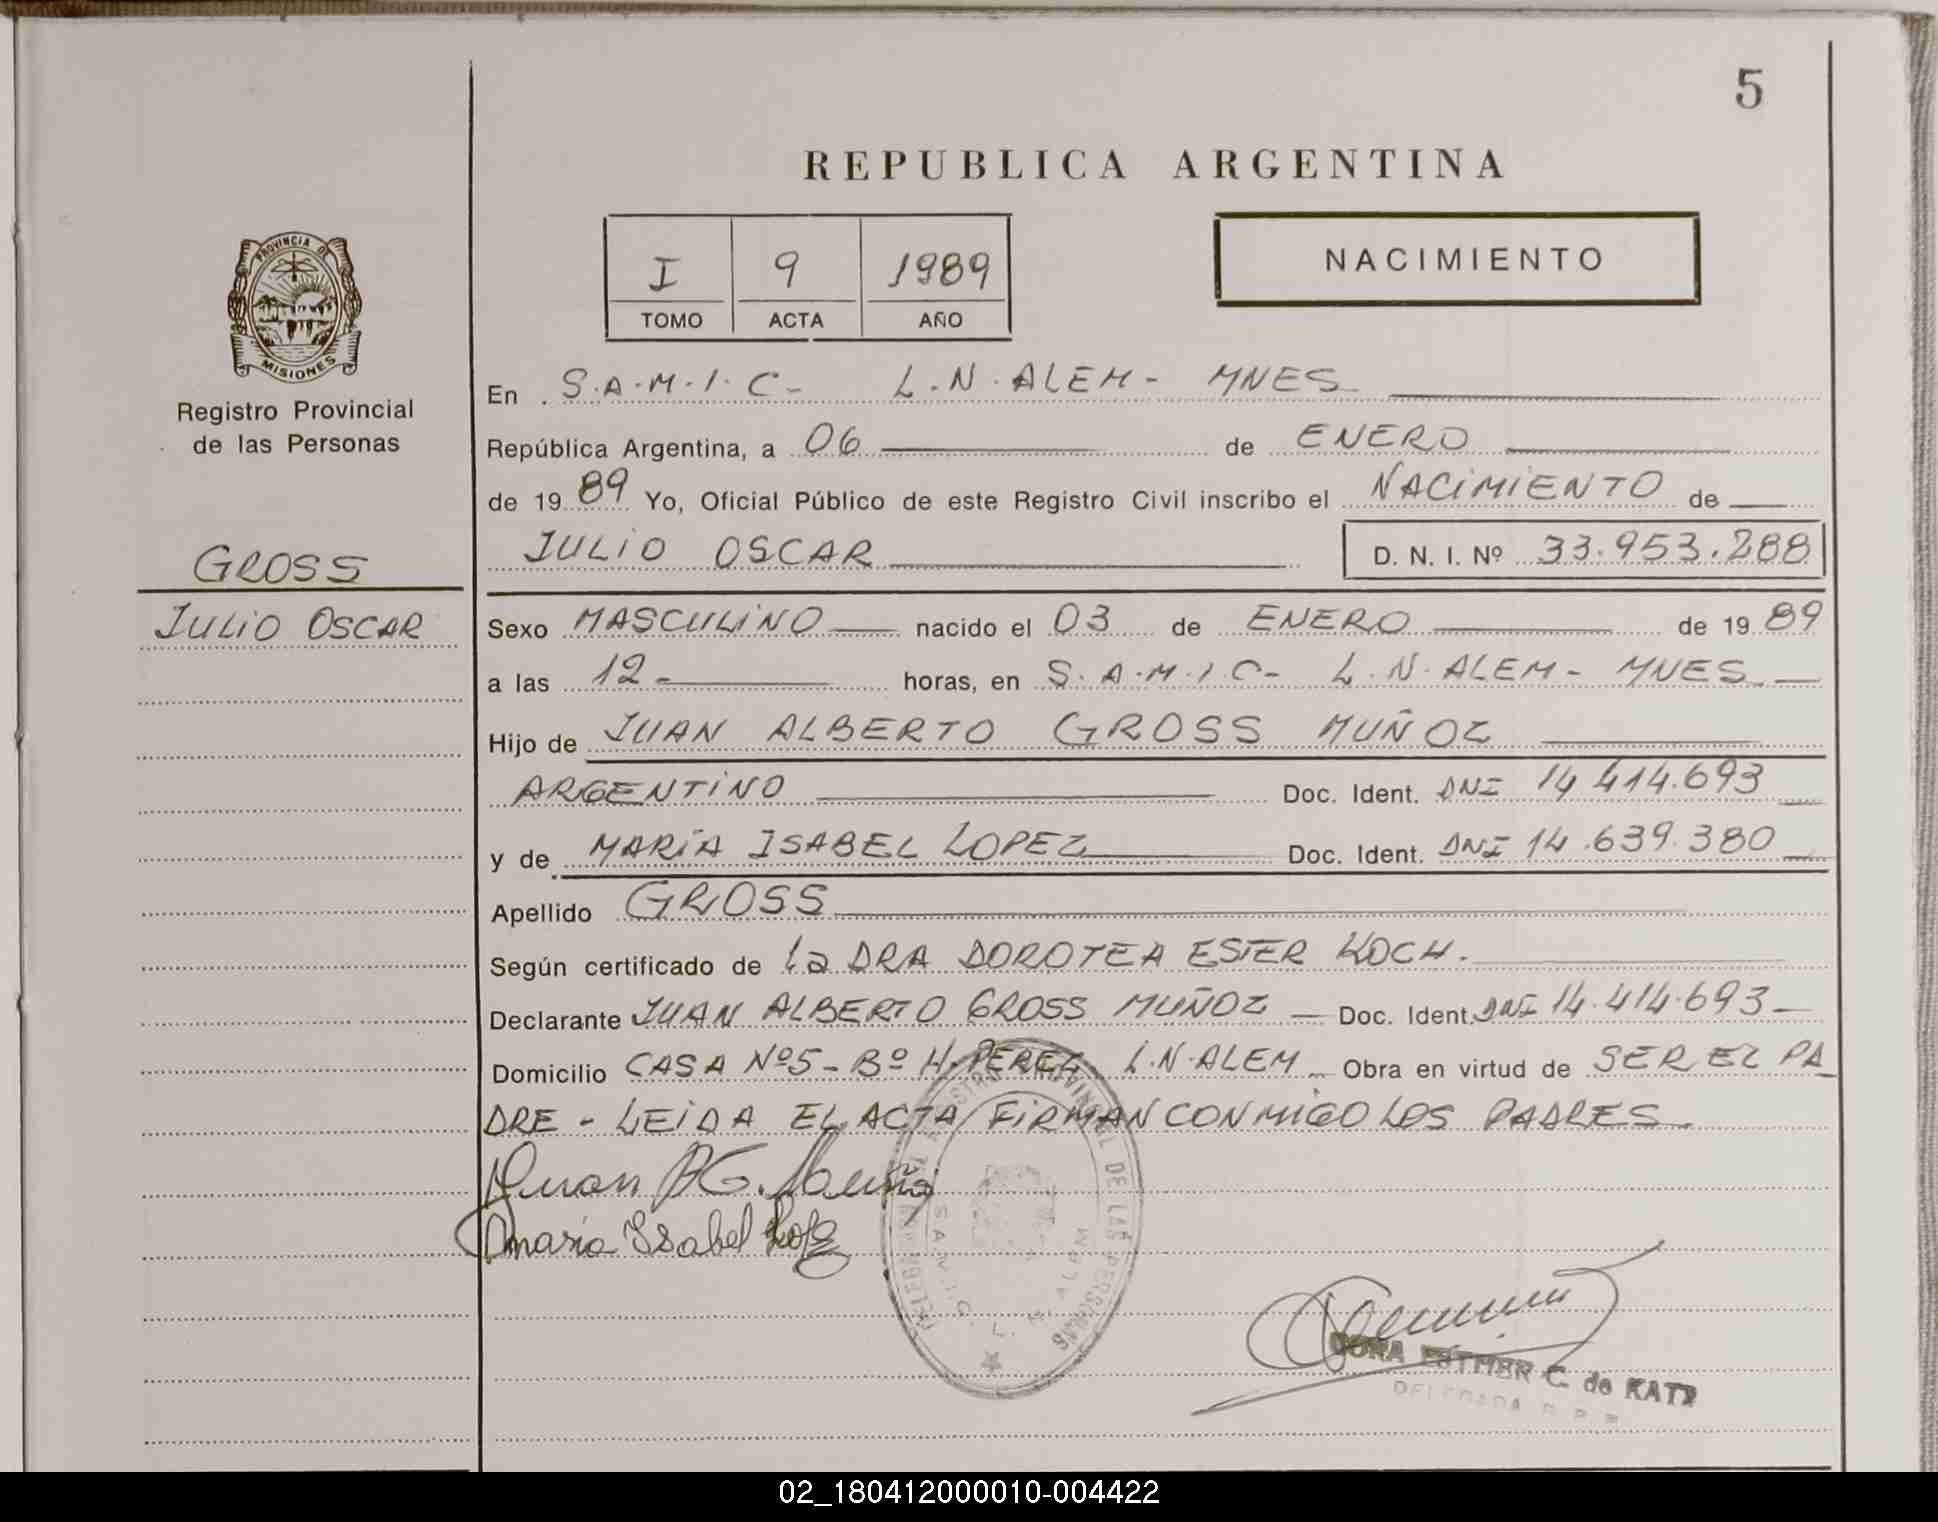 5
REPUBLICA ARGENTINA
I 9 1989
TOMO ACTA AÑO
NACIMIENTO
PROVINCIA DE
MISIONES
Registro Provincial
de las Personas
GROSS
JULIO OSCAR
En S.A.M.I.C- L.N.ALEM- MNES
República Argentina, a 06 de ENERO
de 1989 Yo, Oficial Público de este Registro Civil inscribo el NACIMIENTO de
JULIO OSCAR D. N. I. Nº 33.953.288
Sexo MASCULINO nacido el 03 de ENERO de 1989
a las 12- horas, en S.A.M.I.C- L.N.ALEM- MNES
Hijo de JUAN ALBERTO GROSS MUÑOZ
ARGENTINO Doc. Ident. DNI 14 414.693
y de MARÍA ISABEL LOPEZ Doc. Ident. DNI 14.639.380
Apellido GROSS
Según certificado de La DRA DOROTEA ESTER KOCH.
Declarante JUAN ALBERTO GROSS MUÑOZ - Doc. Ident. DNI 14.414.693-
Domicilio CASA Nº5- Bº H. PEREZ L.N.ALEM- Obra en virtud de SER EL PA
DRE - LEIDA EL ACTA FIRMAN CONMIGO LOS PADRES.
Juan A G. Muñoz
Maria Isabel Lopez
REGISTRO PROVINCIAL DE LAS PERSONAS
L. N. ALEM
DORA ESTHER C. de KATZ
DELEGADA R. P. P.
02_180412000010-004422